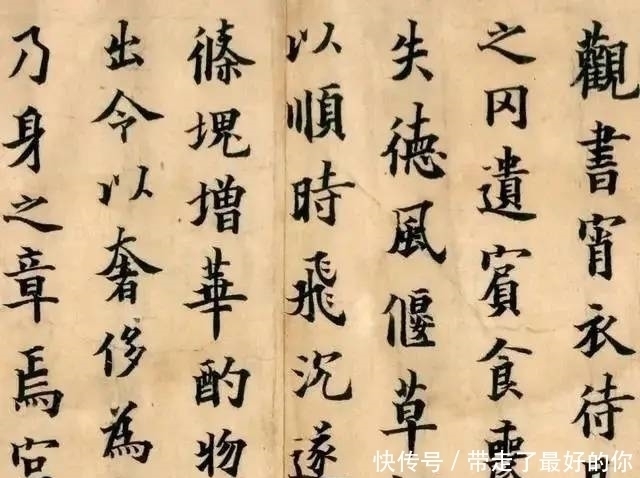 觀書宵衣待
之罔遺賓食
失德風偃草
以順時飛沉遂
塊增華酌物
出令以奢侈為
乃身之章焉
快传号/带走了最好的你